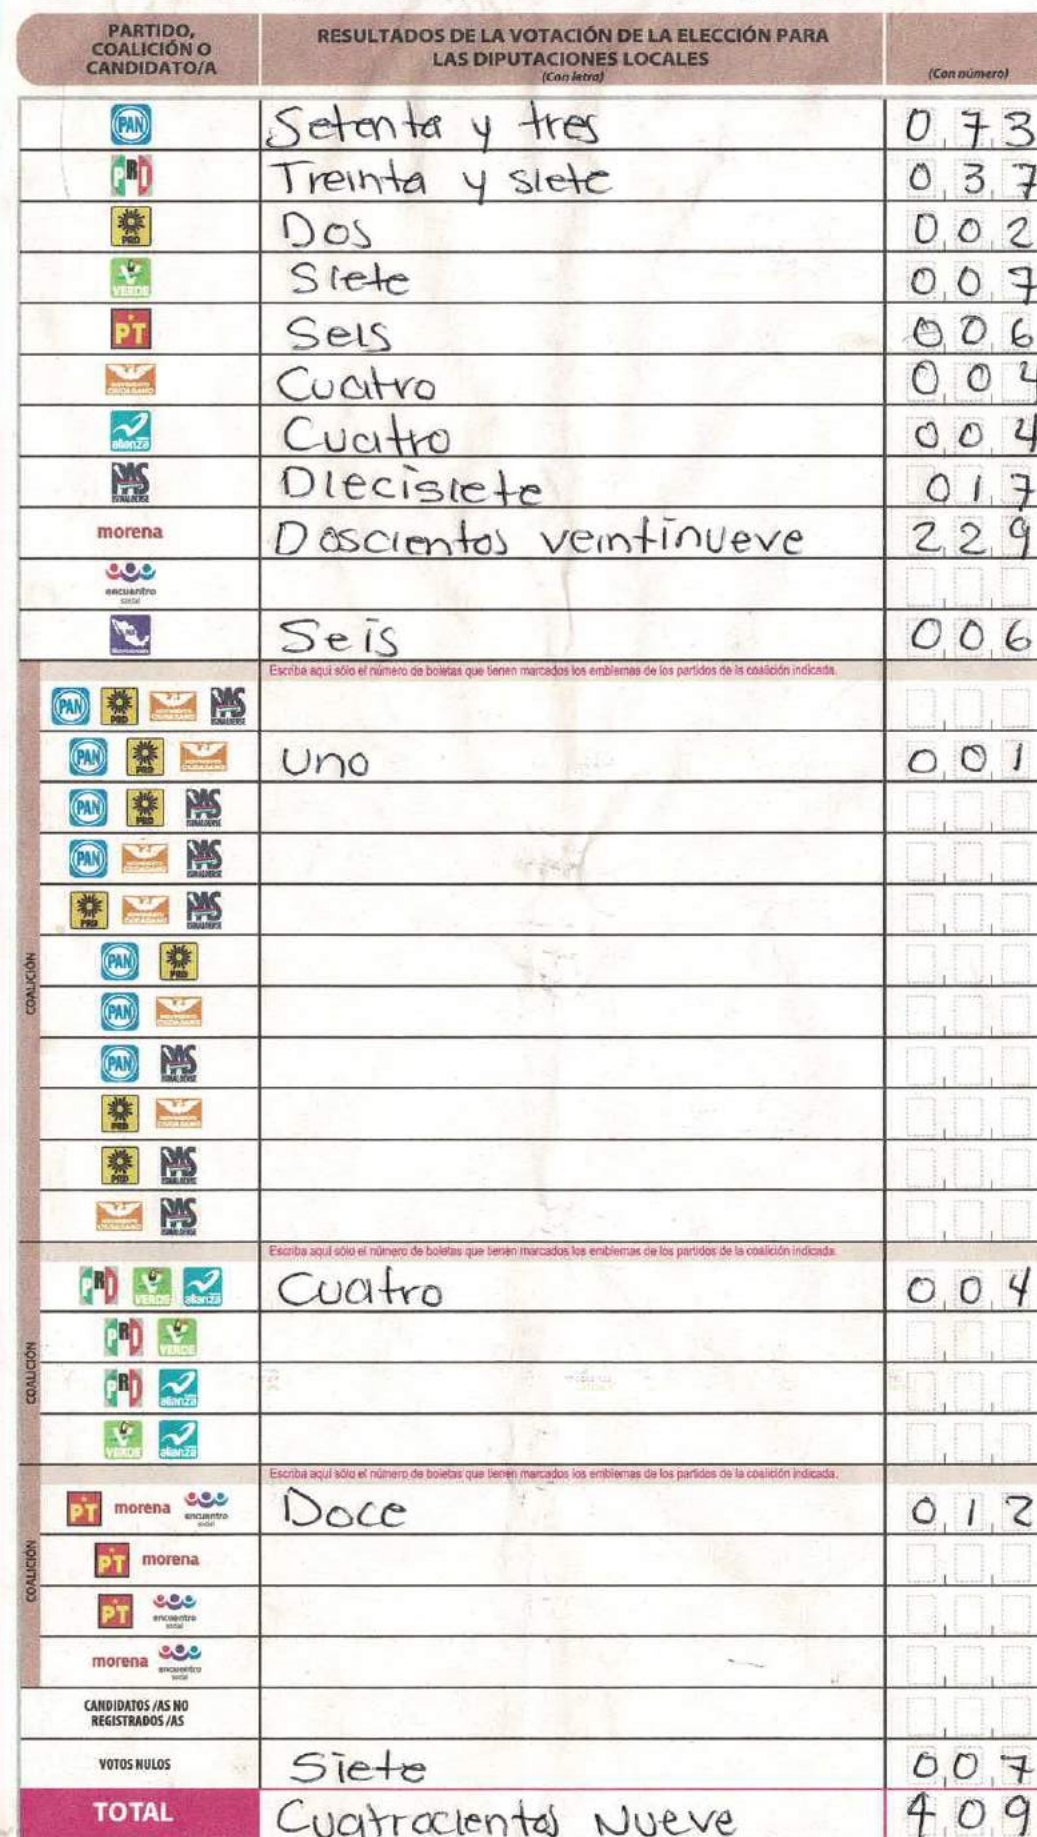 PARTIDO,
COALICIÓN O
CANDIDATO/A
RESULTADOS DE LA VOTACIÓN DE LA ELECCIÓN PARA
LAS DIPUTACIONES LOCALES
(Con letra)
(Con número)
PAN Setenta y tres 073
PRI Treinta y siete 037
PRD Dos 002
VERDE Siete 007
PT Seis 006
MOVIMIENTO CIUDADANO Cuatro 004
alianza Cuatro 004
PAS SINALOENSE Diecisiete 017
morena Doscientos veintinueve 229
encuentro social
Seis 006
Escriba aquí sólo el número de boletas que tienen marcados los emblemas de los partidos de la coalición indicada.
COALICIÓN
PAN PRD MOVIMIENTO CIUDADANO PAS SINALOENSE
PAN PRD MOVIMIENTO CIUDADANO Uno 001
PAN PRD PAS SINALOENSE
PAN MOVIMIENTO CIUDADANO PAS SINALOENSE
PRD MOVIMIENTO CIUDADANO PAS SINALOENSE
PAN PRD
PAN MOVIMIENTO CIUDADANO
PAN PAS SINALOENSE
PRD MOVIMIENTO CIUDADANO
PRD PAS SINALOENSE
MOVIMIENTO CIUDADANO PAS SINALOENSE
Escriba aquí sólo el número de boletas que tienen marcados los emblemas de los partidos de la coalición indicada.
COALICIÓN
PRI VERDE alianza Cuatro 004
PRI VERDE
PRI alianza
VERDE alianza
Escriba aquí sólo el número de boletas que tienen marcados los emblemas de los partidos de la coalición indicada.
COALICIÓN
PT morena encuentro social Doce 012
PT morena
PT encuentro social
morena encuentro social
CANDIDATOS /AS NO
REGISTRADOS /AS
VOTOS NULOS Siete 007
TOTAL Cuatrocientos Nueve 409